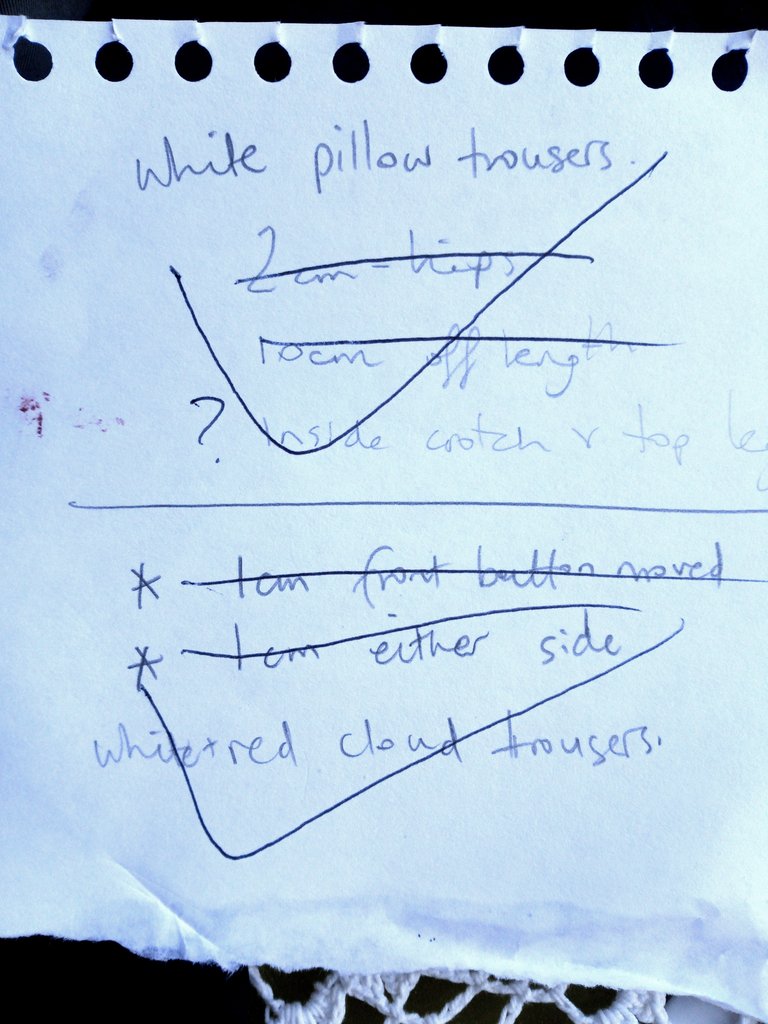 white pillow trousers.
2cm - hips
10cm off length
? inside crotch & top leg
* 1cm front button moved
* 1cm either side
white + red cloud trousers.